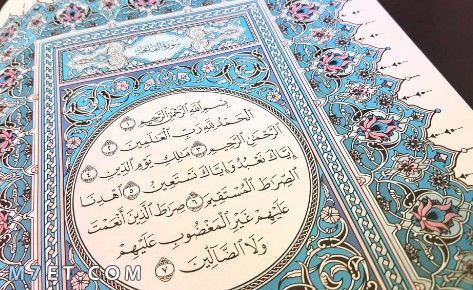 سورة الفاتحة
بِسْمِ اللَّهِ الرَّحْمَٰنِ الرَّحِيمِ ١
الْحَمْدُ لِلَّهِ رَبِّ الْعَالَمِينَ ٢
الرَّحْمَٰنِ الرَّحِيمِ ٣ مَالِكِ يَوْمِ الدِّينِ ٤
إِيَّاكَ نَعْبُدُ وَإِيَّاكَ نَسْتَعِينُ ٥ اهْدِنَا
الصِّرَاطَ الْمُسْتَقِيمَ ٦ صِرَاطَ الَّذِينَ أَنْعَمْتَ
عَلَيْهِمْ غَيْرِ الْمَغْضُوبِ عَلَيْهِمْ
وَلَا الضَّالِّينَ ٧
M7ET.COM